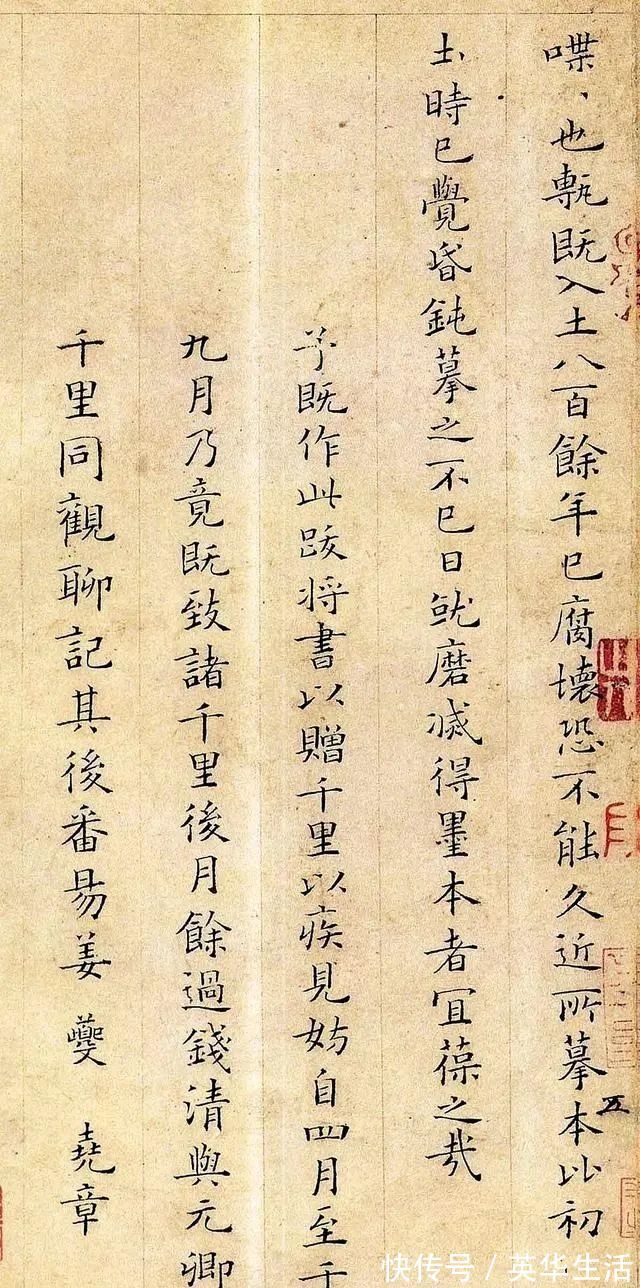 喋、也甎既入土八百餘年已腐壞恐不能久近所摹本比初
土時已覺昏鈍摹之不已日就磨滅得墨本者宜葆之哉
予既作此跋将書以贈千里以疾見妨自四月至于
九月乃竟既致諸千里後月餘過錢清與元卿
千里同觀聊記其後番昜姜夔 堯章
五
快传号 / 英华生活